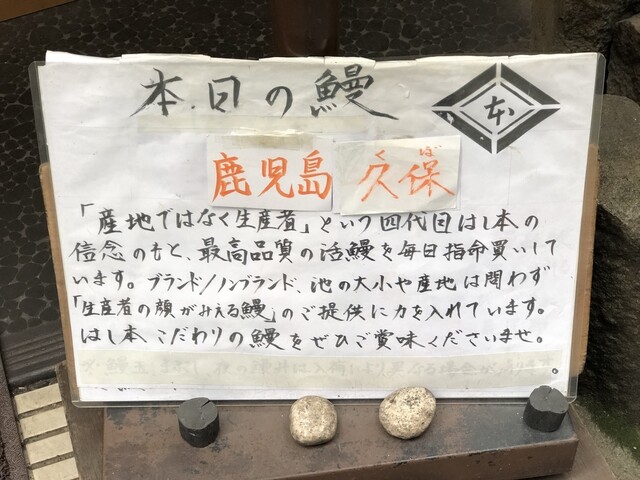 本日の鰻
本
鹿児島 久保
くぼ
「産地ではなく生産者」という四代目はし本の
信念のもと、最高品質の活鰻を毎日指命買いして
います。ブランド/ノンブランド、池の大小や産地は問わず
「生産者の顔がみえる鰻」のご提供に力を入れています。
はし本こだわりの鰻をぜひご賞味くださいませ。